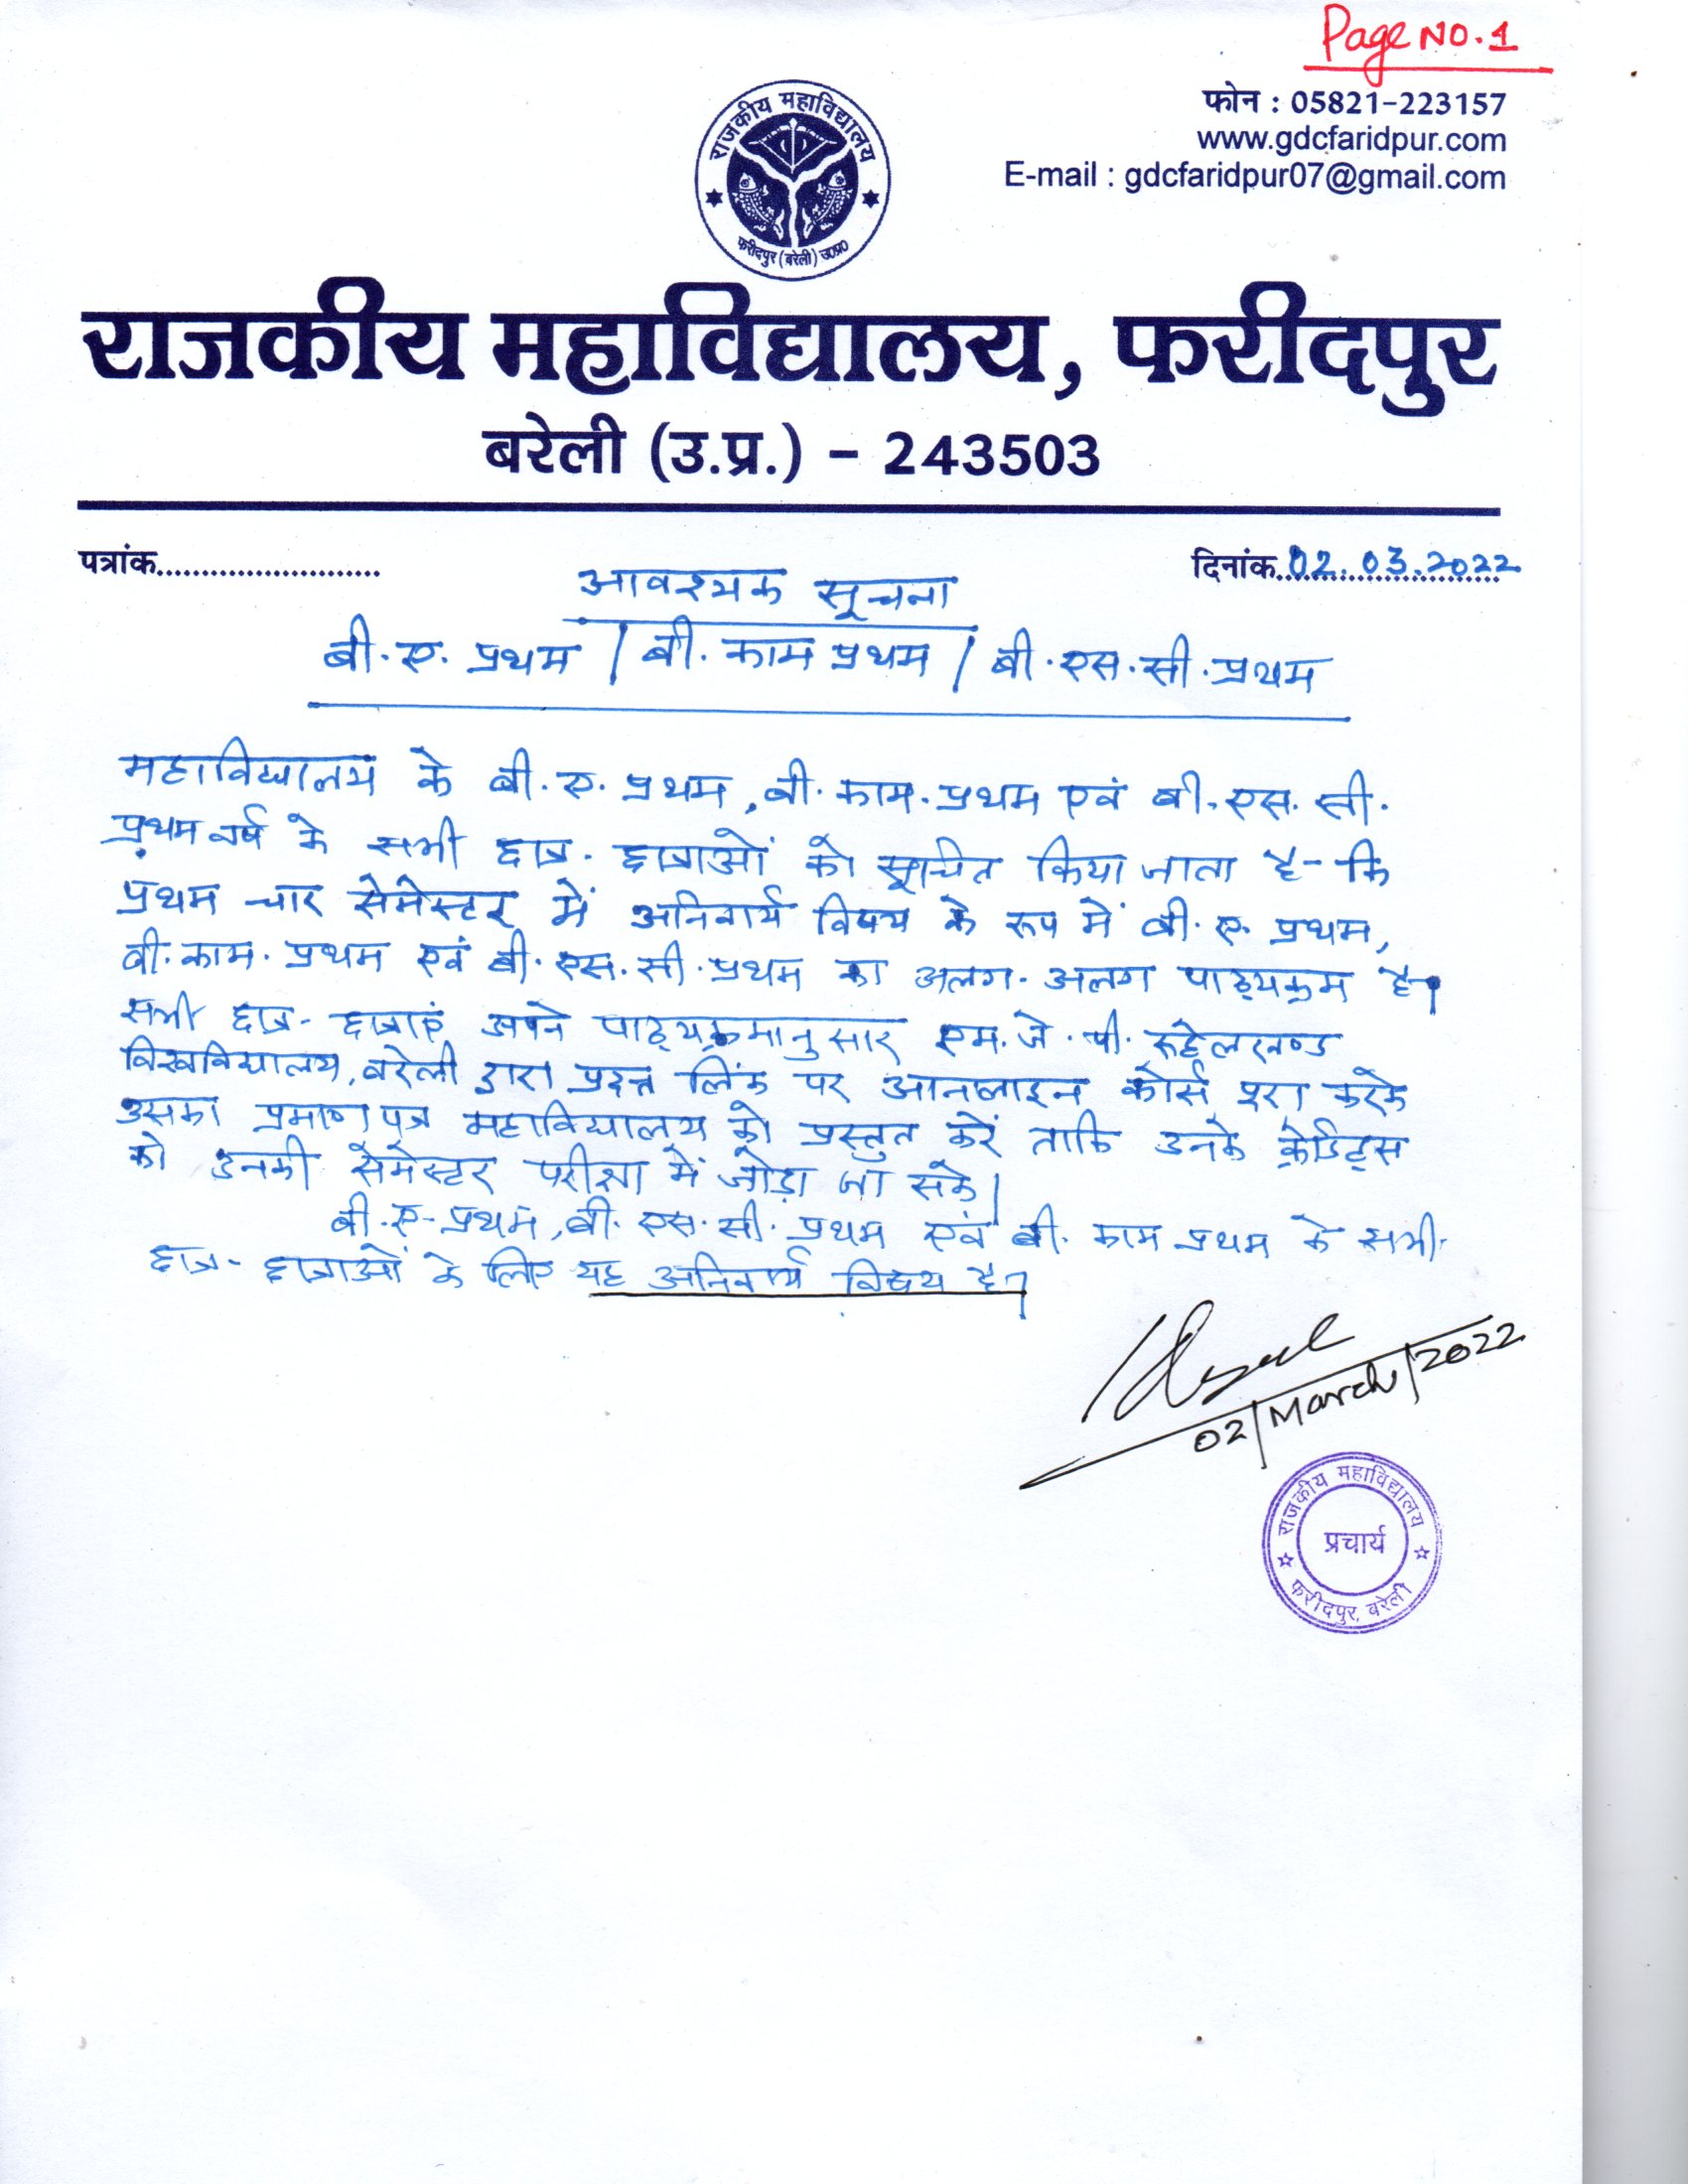 Page No. 1
फोन : 05821-223157
www.gdcfaridpur.com
E-mail : gdcfaridpur07@gmail.com
राजकीय महाविद्यालय
फरीदपुर (बरेली) उ०प्र०
राजकीय महाविद्यालय, फरीदपुर
बरेली (उ.प्र.) - 243503
पत्रांक.........................
दिनांक..02.03.2022
आवश्यक सूचना
बी.ए. प्रथम / बी. काम प्रथम / बी.एस.सी. प्रथम
महाविद्यालय के बी.ए. प्रथम, बी.काम. प्रथम एवं बी.एस.सी.
प्रथम वर्ष के सभी छात्र-छात्राओं को सूचित किया जाता है- कि
प्रथम चार सेमेस्टर में अनिवार्य विषय के रूप में बी.ए. प्रथम,
बी.काम. प्रथम एवं बी.एस.सी. प्रथम का अलग-अलग पाठ्यक्रम है।
सभी छात्र-छात्राएं अपने पाठ्यक्रमानुसार एम.जे.पी. रूहेलखण्ड
विश्वविद्यालय, बरेली द्वारा प्रदत्त लिंक पर आनलाइन कोर्स पूरा करके
उसका प्रमाण पत्र महाविद्यालय को प्रस्तुत करें ताकि उनके क्रेडिट्स
को उनकी सेमेस्टर परीक्षा में जोड़ा जा सके।
बी.ए- प्रथम, बी.एस.सी. प्रथम एवं बी. काम प्रथम के सभी
छात्र-छात्राओं के लिए यह अनिवार्य विषय है।
02/March/2022
राजकीय महाविद्यालय
प्रचार्य
फरीदपुर, बरेली